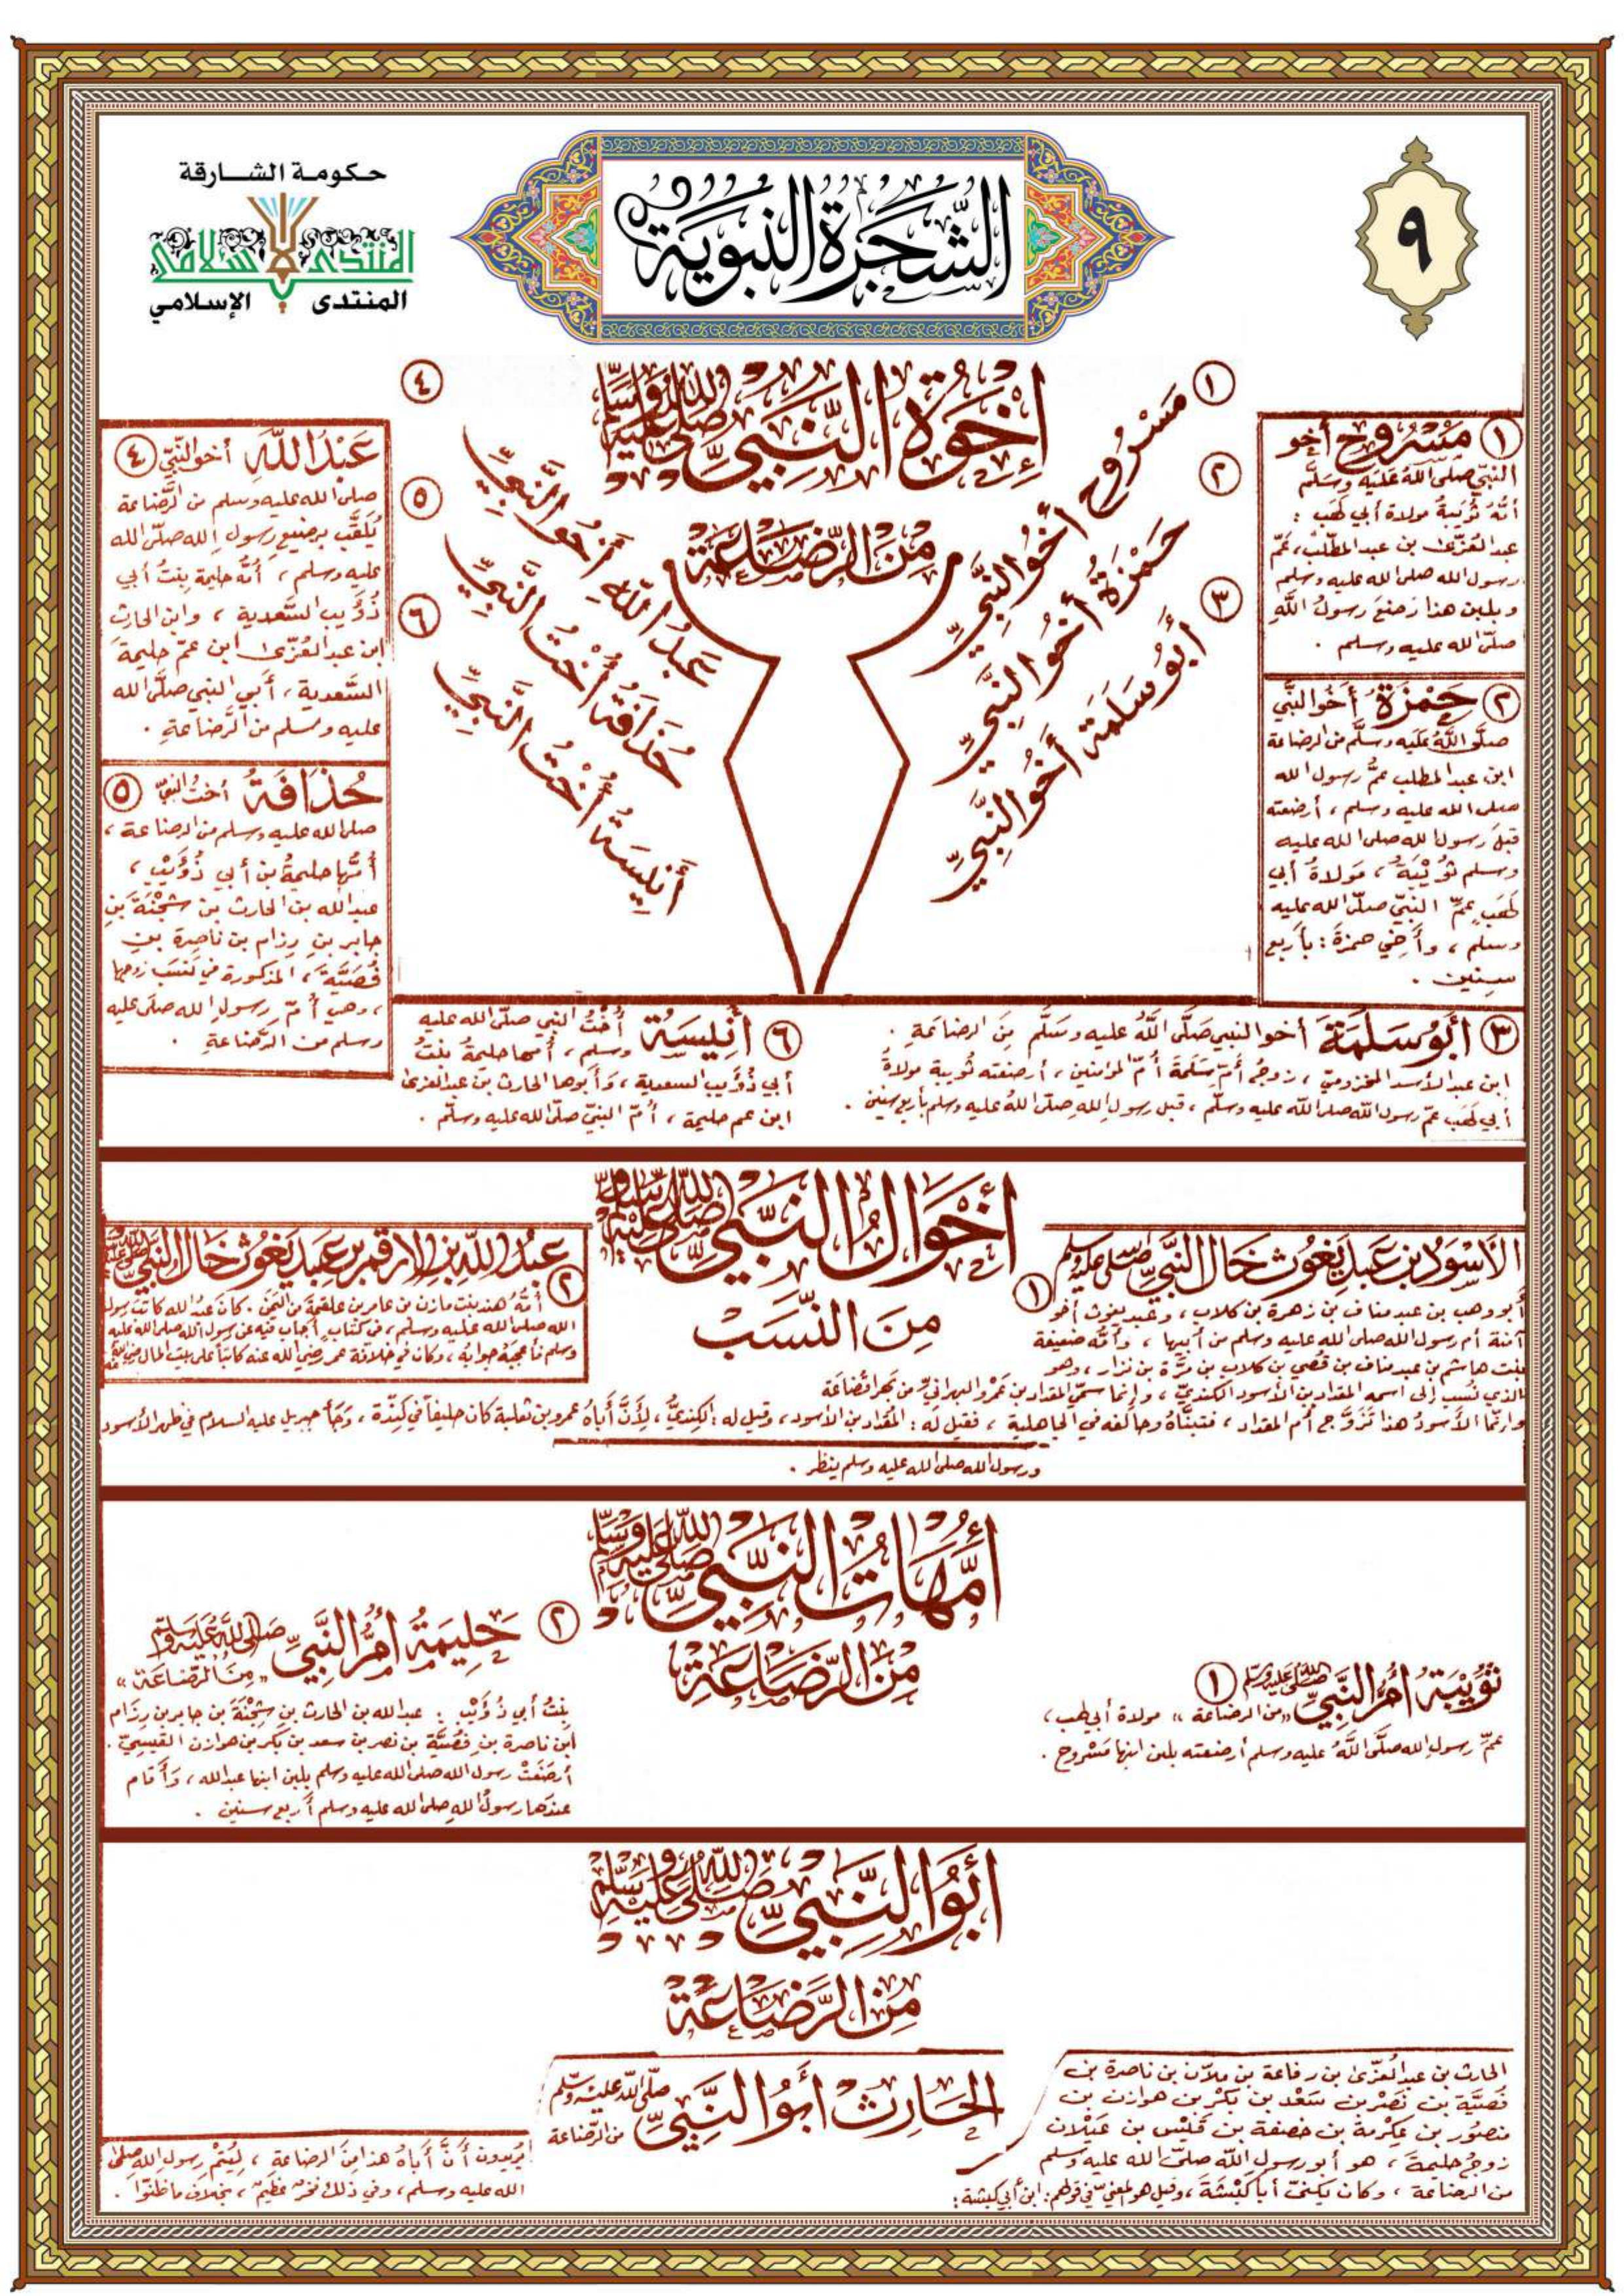 حكومة الشارقة
المنتدى الإسلامي
المنتدى الإسلامي
الشجرة النبوية
٩
إخوة النبي صلى الله عليه وسلم
من الرضاعة
١ مسروح أخو النبي
٢ حمزة أخو النبي
٣ أبو سلمة أخو النبي
٤ عبد الله أخو النبي
٥ حذافة أخت النبي
٦ أنيسة أخت النبي
١ مسروح أخو
النبي صلى الله عليه وسلم
أمه ثويبة مولاة أبي لهب :
عبد العزى بن عبد المطلب، عم
رسول الله صلى الله عليه وسلم
وبلبن هذا رضع رسول الله
صلى الله عليه وسلم .
٢ حمزة أخو النبي
صلى الله عليه وسلم من الرضاعة
ابن عبد المطلب عم رسول الله
صلى الله عليه وسلم ، أرضعته
قبل رسول الله صلى الله عليه
وسلم ثويبة ، مولاة أبي
لهب عم النبي صلى الله عليه
وسلم ، وأخي حمزة : بأربع
سنين .
٣ أبو سلمة أخو النبي صلى الله عليه وسلم من الرضاعة .
ابن عبد الأسد المخزومي ، زوج أم سلمة أم المؤمنين ، أرضعته ثويبة مولاة
أبي لهب عم رسول الله صلى الله عليه وسلم ، قبل رسول الله صلى الله عليه وسلم بأربع سنين .
٤ عبد الله أخو النبي
صلى الله عليه وسلم من الرضاعة
يلقب برضيع رسول الله صلى الله
عليه وسلم ، أمه حليمة بنت أبي
ذؤيب السعدية ، وابن الحارث
ابن عبد العزى ابن عم حليمة
السعدية ، أبي النبي صلى الله
عليه وسلم من الرضاعة .
٥ حذافة أخت النبي
صلى الله عليه وسلم من الرضاعة ،
أمها حليمة بن أبي ذؤيب ،
عبد الله بن الحارث بن شجنة بن
جابر بن رزام بن ناصرة بن
فصية ، المذكورة في نسب زوجها
، وهي أم رسول الله صلى عليه
وسلم من الرضاعة .
٦ أنيسة أخت النبي صلى الله عليه
وسلم ، أمها حليمة بنت
أبي ذؤيب السعدية ، وأبوها الحارث بن عبد العزى
ابن عم حليمة ، أم النبي صلى الله عليه وسلم .
أخوال النبي صلى الله عليه وسلم
من النسب
الأسود بن عبد يغوث خال النبي صلى الله عليه وسلم ١
أبو وهب بن عبد مناف بن زهرة بن كلاب ، وعبد يغوث أخو
آمنة أم رسول الله صلى الله عليه وسلم من أبيها ، وأمه ضعيفة
بنت هاشم بن عبد مناف بن قصي بن كلاب بن مرة بن نزار ، وهو
الذي نسب إلى اسمه المقداد بن الأسود الكندي ، وإنما سمي المقداد بن عمرو البهراني من بهرا قضاعة
وإنما الأسود هذا تزوج أم المقداد ، فتبناه وحالفه في الجاهلية ، فقيل له : المقداد بن الأسود ، وقيل له : الكندي ، لأن أباه عمرو بن ثعلبة كان حليفا في كندة ، وجأ جبريل عليه السلام في ظهر الأسود
ورسول الله صلى الله عليه وسلم ينظر .
عبد الله بن الأرقم بن عبد يغوث خال النبي صلى الله عليه وسلم
٢ أمه هند بنت مازن من عامر بن علقمة من اليمن . كان عبد الله كاتب رسول
الله صلى الله عليه وسلم ، من كتاب أجاب فيه عن رسول الله صلى الله عليه
وسلم فأعجبه جوابه ، وكان في خلافة عمر رضي الله عنه كاتبا على بيت المال
أمهات النبي صلى الله عليه وسلم
من الرضاعة
ثويبة أم النبي صلى الله عليه وسلم ١
«من الرضاعة» مولاة أبي لهب ،
عم رسول الله صلى الله عليه وسلم أرضعته بلبن ابنها مسروح .
٢ حليمة أم النبي صلى الله عليه وسلم
«من الرضاعة»
بنت أبي ذؤيب : عبد الله بن الحارث بن شجنة بن جابر بن رزام
ابن ناصرة بن فصية بن نصر بن سعد بن بكر بن هوازن القيسي .
أرضعت رسول الله صلى الله عليه وسلم بلبن ابنها عبد الله ، وأقام
عندها رسول الله صلى الله عليه وسلم أربع سنين .
أبو النبي صلى الله عليه وسلم
من الرضاعة
الحارث أبو النبي صلى الله عليه وسلم
من الرضاعة
الحارث بن عبد العزى بن رفاعة بن ملان بن ناصرة بن
فصية بن نصر بن سعد بن بكر بن هوازن بن
منصور بن عكرمة بن خصفة بن قيس بن عيلان
زوج حليمة ، هو أبو رسول الله صلى الله عليه وسلم
من الرضاعة ، وكان يكنى أبا كبشة ، وقيل هو المعني في قولهم : ابن أبي كبشة :
يريدون أن أباه هذا من الرضاعة ، ليتم رسول الله صلى
الله عليه وسلم ، وفي ذلك فخر عظيم ، بخلاف ما ظنوا .